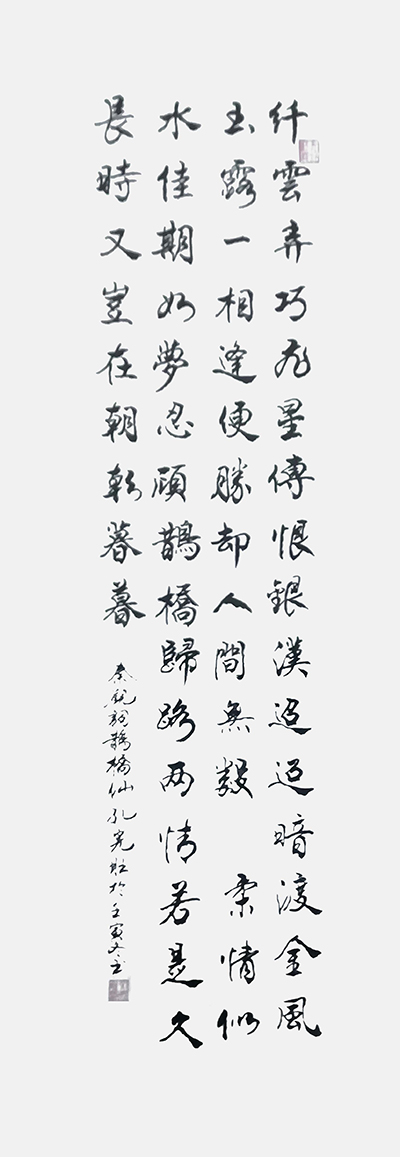 纤雲弄巧飛星傳恨銀漢迢迢暗渡金風
玉露一相逢便勝却人間無數 柔情似
水佳期如夢忍顧鵲橋歸路两情若是久
長時又豈在朝朝暮暮
秦觀詞鵲橋仙 孔於壬寅冬